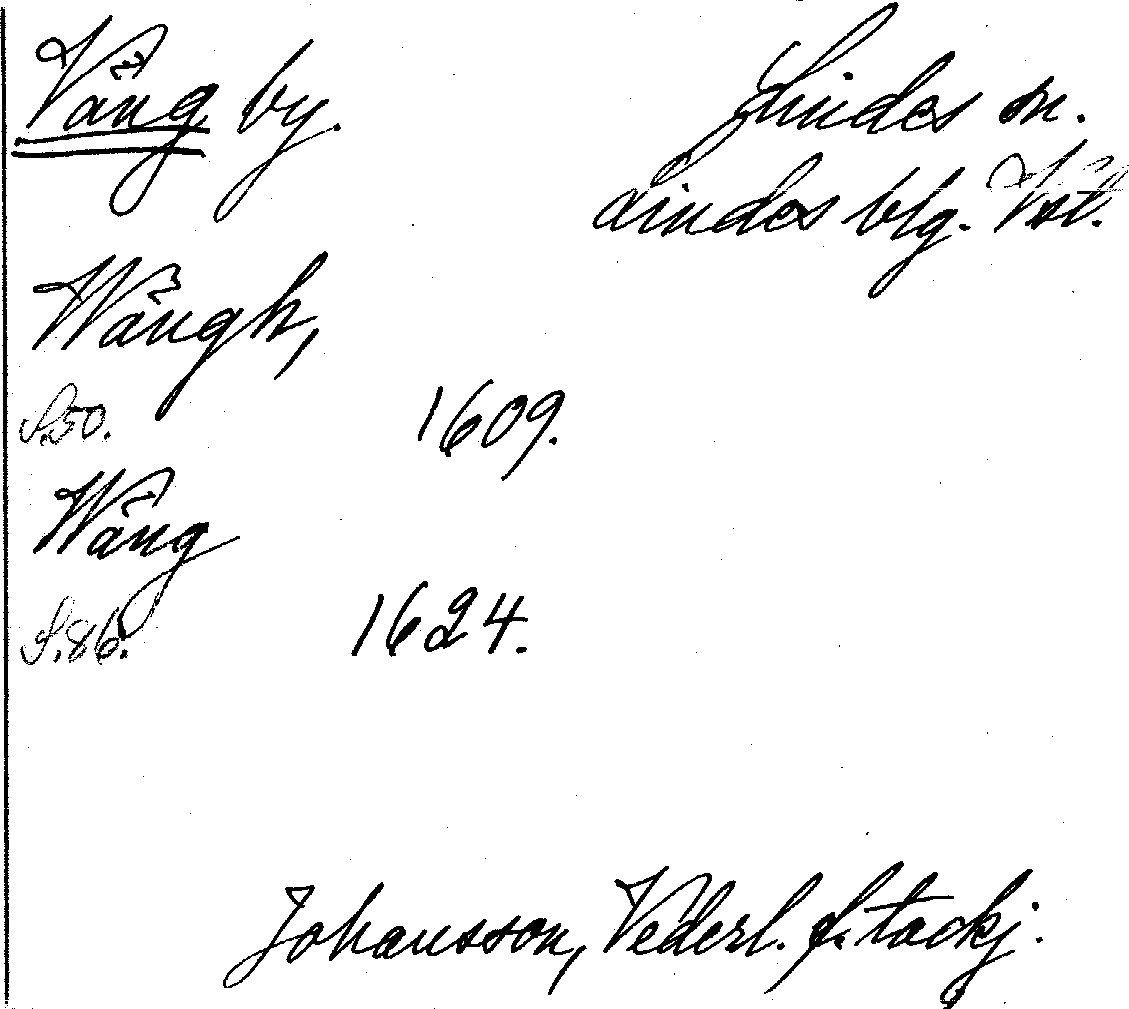 Vång by.
Lindes sn.
Lindes blg. Vstl.
Wångh,
S.50. 1609.
Wång
S.86. 1624.
Johansson, Vederl. f. tackj.